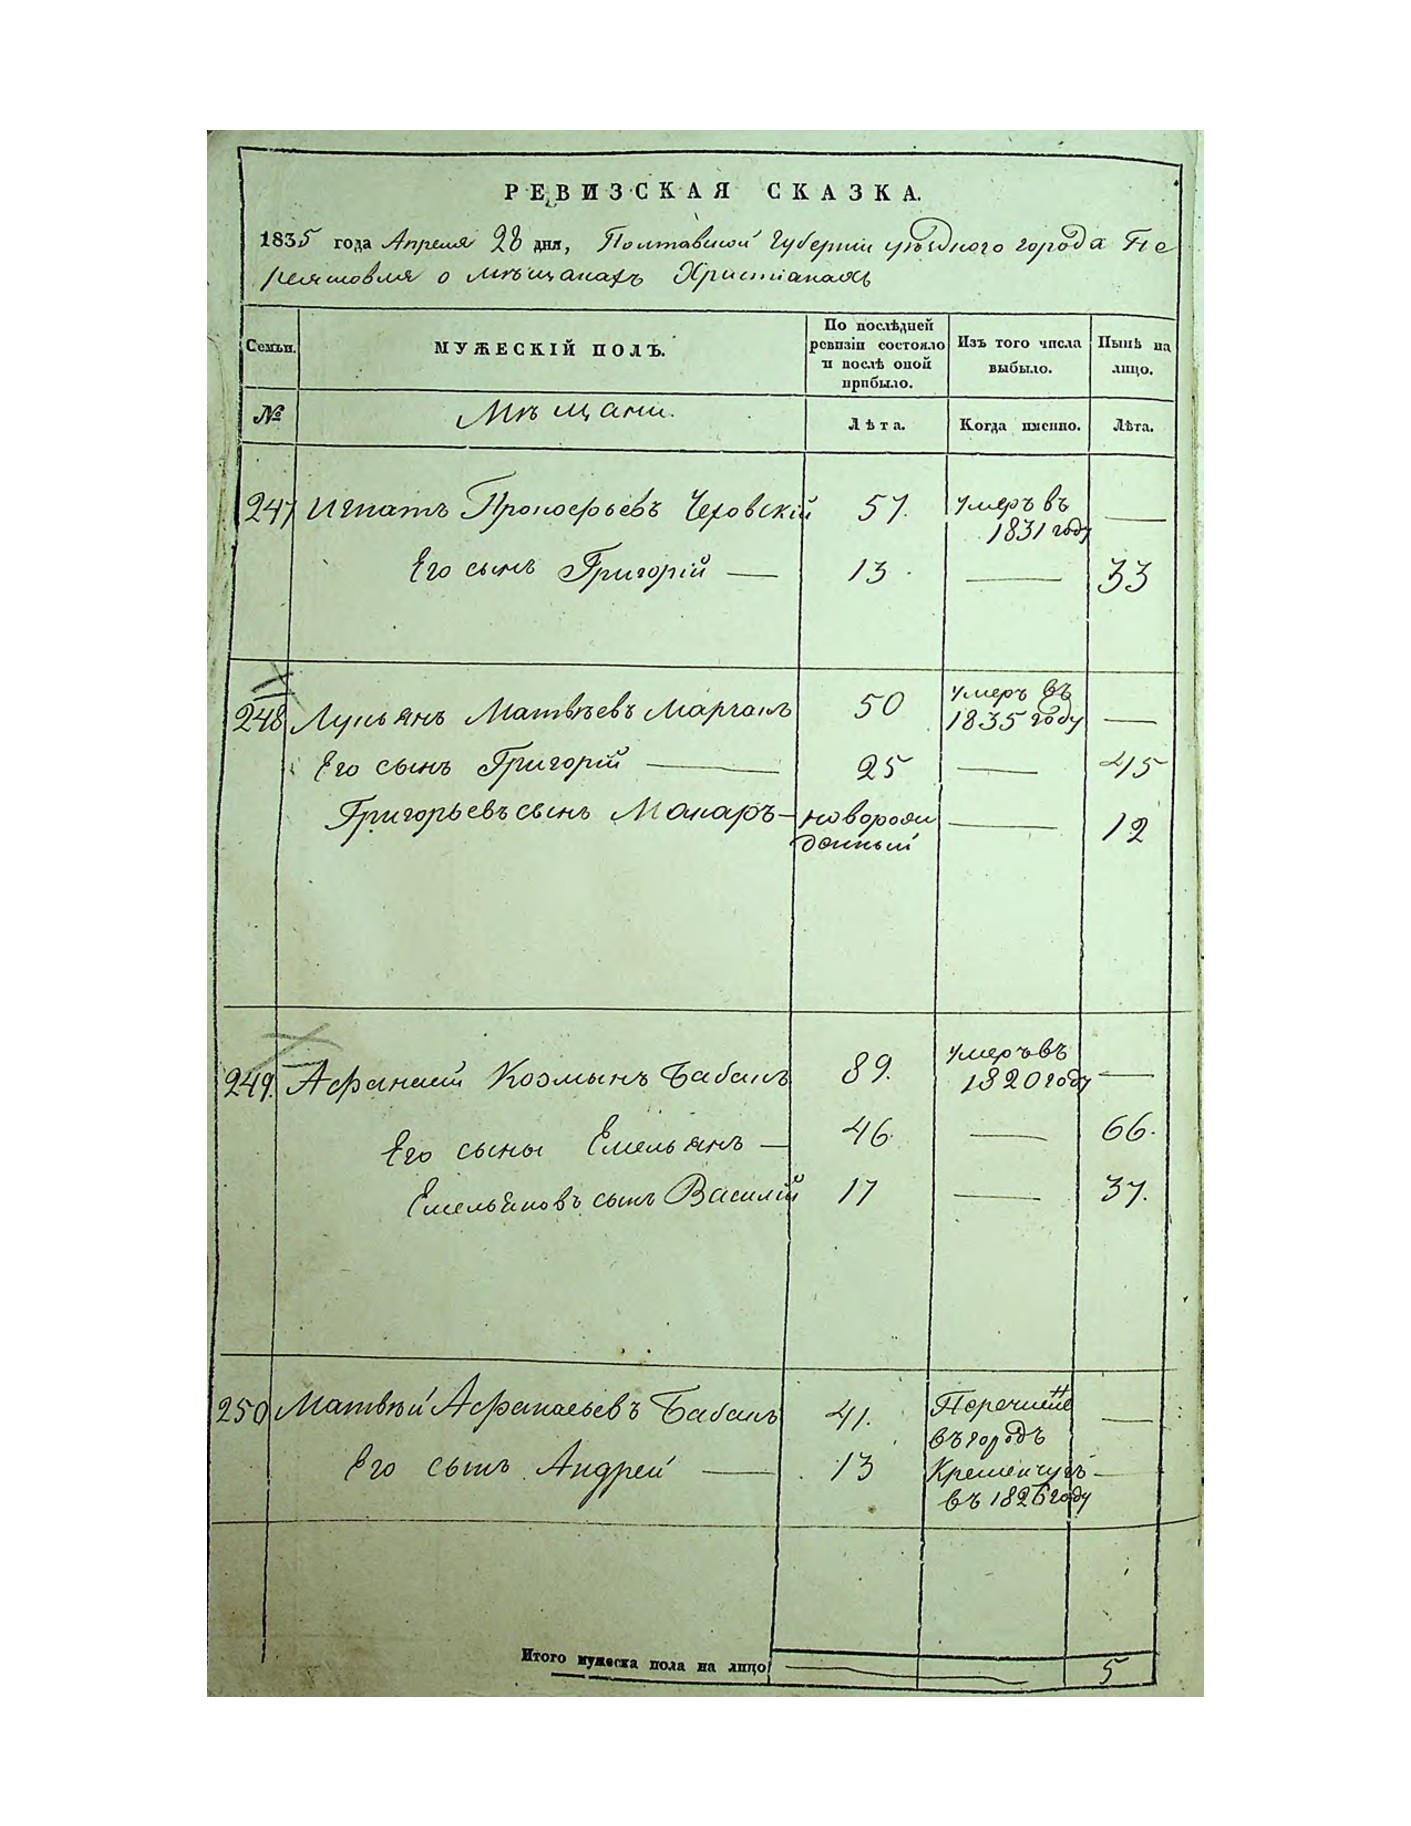 РЕВИЗСКАЯ СКАЗКА.
1835 года Апреля 28 дня, Полтавской Губернии уѣзднаго города Пе
реяславля о мѣщанахъ Христіанахъ
Семьи. МУЖЕСКІЙ ПОЛЪ. По послѣдней ревизіи состояло и послѣ оной прибыло. Изъ того числа выбыло. Нынѣ на лицо.
№ Мѣщани. Лѣта. Когда именно. Лѣта.
247 Игнатъ Прокофьевъ Чеховскій 57. умеръ въ 1831 году —
Его сынъ Григорій — 13. — 33
248 Лукьянъ Матвѣевъ Марчакъ 50 умеръ въ 1835 году —
Его сынъ Григорій — 25 — 45
Григорьевъ сынъ Макаръ — новорожденный — 12
249. Афанасій Козминъ Бабакъ 89. умеръ въ 1820 году —
Его сыны Емельянъ — 46. — 66.
Емельяновъ сынъ Василій 17 — 37.
250 Матвѣй Афанасьевъ Бабакъ 41. —
Его сынъ Андрей — 13 въ городъ Кременчугъ въ 1826 году —
Итого мужеска пола на лицо — 5